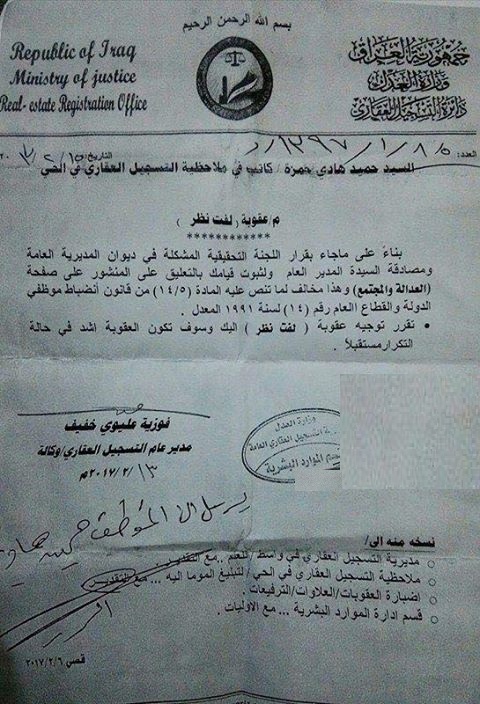 بسم الله الرحمن الرحيم
Republic of Iraq
Ministry of justice
Real- estate Registration Office
جمهورية العراق
وزارة العدل
دائرة التسجيل العقاري
العدد:
التاريخ:
السيد حميد هادي حمزة / كاتب في ملاحظية التسجيل العقاري في الحي
م/عقوبة ( لفت نظر )
************
بناءً على ماجاء بقرار اللجنة التحقيقية المشكلة في ديوان المديرية العامة
ومصادقة السيدة المدير العام ولثبوت قيامك بالتعليق على المنشور على صفحة
(العدالة والمجتمع) وهذا مخالف لما تنص عليه المادة (١٤/٥) من قانون أنضباط موظفي
الدولة والقطاع العام رقم (١٤) لسنة ١٩٩١ المعدل .
• تقرر توجيه عقوبة ( لفت نظر ) اليك وسوف تكون العقوبة اشد في حالة
التكرار مستقبلاً .
فوزية عليوي خفيف
مدير عام التسجيل العقاري/وكالة
١٣/٢/٢٠١٧م
وزارة العدل
التسجيل العقاري العامة
قسم الموارد البشرية
يرسل الى الموظف
نسخه منه الى/
○ مديرية التسجيل العقاري في واسط/للعلم ..مع التقدير.
○ ملاحظية التسجيل العقاري في الحي/لتبليغ الموما اليه ... مع التقدير.
○ اضبارة العقوبات/العلاوات/الترفيعات .
○ قسم ادارة الموارد البشرية ... مع الاوليات .
قصي ٢٠١٧/٢/٦